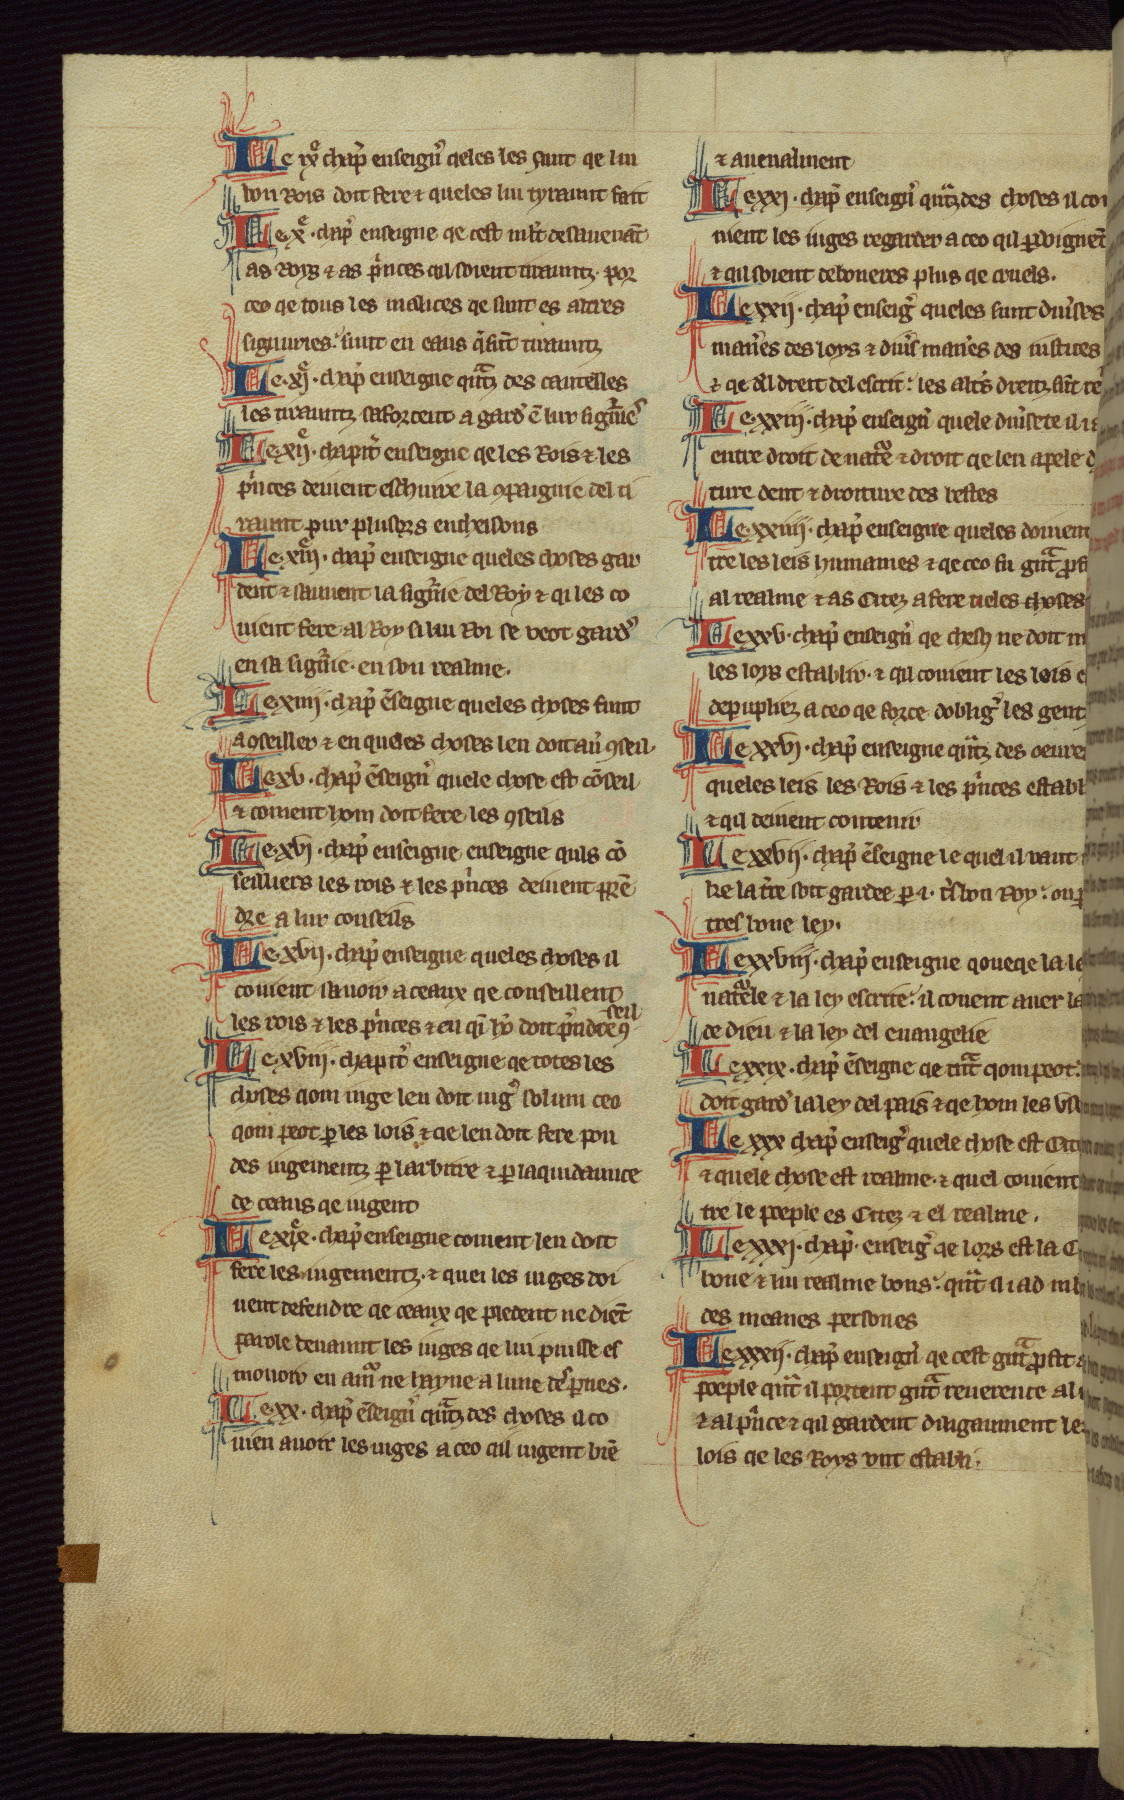 Le ix͛ chap̃ enseign̛ qeles les sunt qe lui
bon Rois doit fere ⁊ queles lui tyraunt fait
Le x͛ · chap̛ enseigne qe cest mlt̃ desauenãt
as Roys ⁊ as p̛nces qil soient tirauntz · por
ceo qe tous les malices qe sunt es altres
signuries : sunt en eaus q̃ sũt tirauntz
Le · xj͛ · chap̛ enseigne qũtz des cautelles
les tirauntz saforcent a gard̛ ẽ lur sign̛ie
Le xij͛ · chapitr̛ enseigne qe les Rois ⁊ les
p̛nces deiuent eschuire la ꝯpaignie del ti
raunt pur plusors encheisons
Le xiij͛ · chap̃ enseigne queles choses gar
dent ⁊ sauuent la sign̛ie del Roy ⁊ qi les co
uient fere al Roy si lui Roi se veot gard̛
en sa sign̛ie · en son realme ·
Le xiiij · chap̃ ẽseigne queles choses sunt
a ꝯseiller ⁊ en queles choses len doit aư ꝯseil
Le xv · chap̃ ẽseign̛ quele chose est cõseil
⁊ coment hom doit fere les ꝯseils
Le xvj · chap̃ enseigne enseigne quils cõ
seilliers les rois ⁊ les p̛nces deiuent prẽ
dre a lur conseils
Le xvij · chap̃ enseigne queles choses il
couient sauoir a ceaux qe conseillent
les rois ⁊ les p̛nces ⁊ en qi hõ doit p̛ndre ꝯ seil
Le xviij · chapitr̛ enseigne qe totes les
choses qom iuge len doit iug̛ solum ceo
qom peot ꝑ les lois ⁊ qe len doit fere pou
des iugementz ꝑ larbitre ⁊ ꝑ la quidaunce
de ceaus qe iugent
Le xix͛ · chap̃ enseigne coment len doit
fere les iugementz · ⁊ quei les iuges doi
uent defendre qe ceaux qe pledent ne diẽt
parole deuaunt les iuges qe lui puisse es
mouoir en am̛ ne hayne a lune des ꝑties ·
Le xx · chap̃ ẽseign̛ qũtz des choses il co
uien auoir les iuges a ceo qil iugent biẽ
⁊ auenalment
Le xxj · chap̃ enseign̛ qũtz des choses il con
uient les iuges regarder a ceo qil ꝑdoignẽt
⁊ qil soient deboneres plus qe cruels ·
Le xxij · chap̃ enseig̛ queles sunt diưses
man̛es des loys ⁊ diưs man̛es des iustices
⁊ qe del dreit del escrit : les alt̛s dreitz sũt re
Le xxiij · chap̃ enseign̛ quele diưsete il i
entre droit de natr̃e ⁊ droit qe len apele
ture dent ⁊ droiture des bestes
Le xxiiij · chap̃ enseigne queles doiuent
tre les leis humaines ⁊ qe ceo fu gñt ꝓfi
al realme ⁊ as Citez a fere tieles choses
Le xxv · chap̃ enseign̛ qe chesc̃ ne doit m
les loys establir · ⁊ qil couient les lois e
depupliez a ceo qe force doblig̛ les gent
Le xxvj · chap̃ enseigne qũtz des oeures
queles leis les Rois ⁊ les p̛nces establ
⁊ qil deiuent contenir
Le xxvij · chap̃ ẽseigne le quel il vaut
bre la tr̃e soit gardee ꝑ i · tr̃s bon Roy : ou ꝑ
tres bone ley ·
Le xxviij · chap̃ enseigne qoueqe la le
natr̃ele ⁊ la ley escrite : il couent auer la
de dieu ⁊ la ley del euangelie
Le xxix · chap̃ ẽseigne qe tñt qom peot :
doit gard̛ la ley del pais ⁊ qe hom les vse
Le xxx chap̃ enseig̛ quele chose est Cite
⁊ quele chose est realme · ⁊ quel couient
tre le poeple es Citez ⁊ el realme ·
Le xxxj · chap̃ · enseig̛ qe lors est la C
bone ⁊ lui realme bons : qũt il i ad ml
des meanes persones
Le xxxij · chap̃ enseign̛ qe cest gñt ꝓfit a
poeple qũt il portent gñt reuerence al
⁊ al p̛nce ⁊ qil gardent diligaument le
lois qe les Roys vnt establi ·